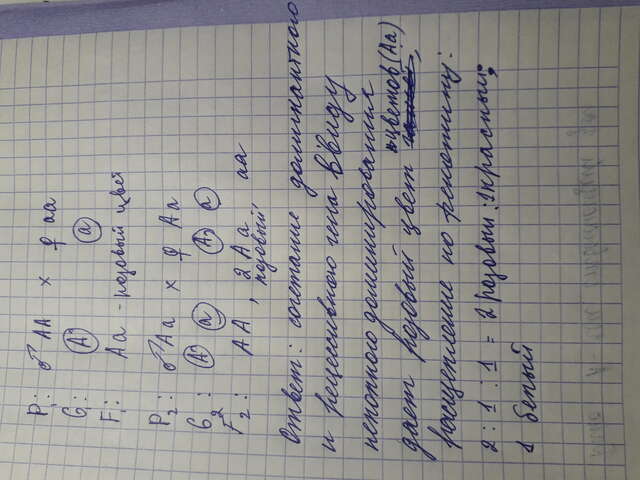 P₁: ♂ AA x ♀ aa
G₁: Ⓐ ⓐ
F₁: Aa - розовый цвет
P₂: ♂ Aa x ♀ Aa
G₂: Ⓐ ⓐ Ⓐ ⓐ
F₂: AA, 2Aa, aa
розовый
Ответ: сочетание доминантного
и рецессивного гена ввиду
неполного доминирования
дает розовый цвет цветов (Aa),
расщепление по фенотипу:
2 : 1 : 1 = 2 розовый : 1 красный :
1 белый